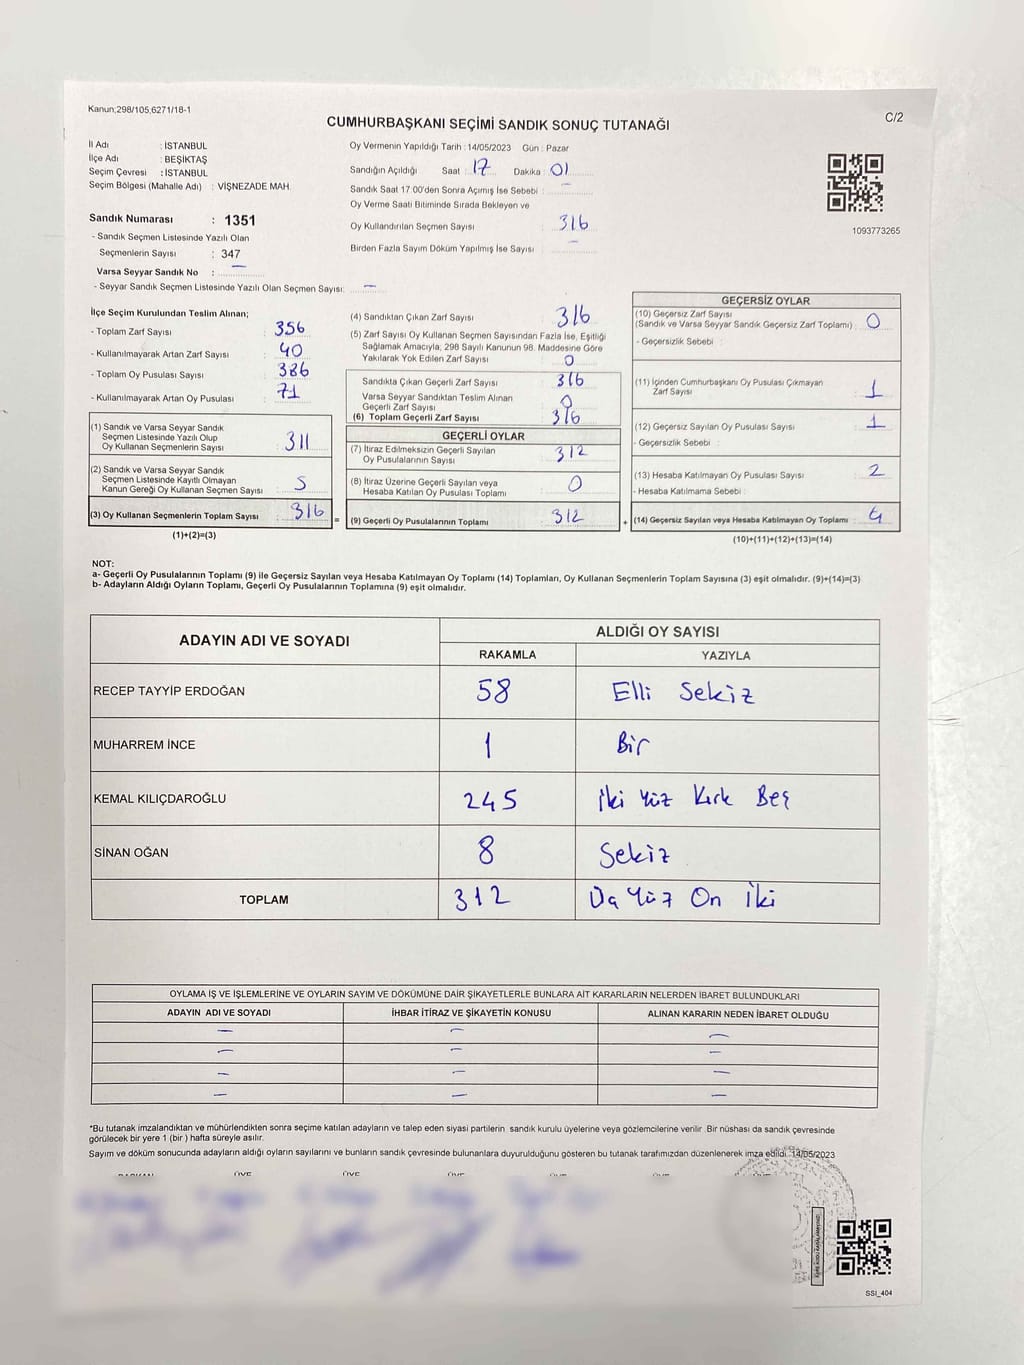 Kanun;298/105,6271/18-1
C/2
CUMHURBAŞKANI SEÇİMİ SANDIK SONUÇ TUTANAĞI
İl Adı : İSTANBUL
İlçe Adı : BEŞİKTAŞ
Seçim Çevresi : İSTANBUL
Seçim Bölgesi (Mahalle Adı) : VİŞNEZADE MAH.
Sandık Numarası : 1351
- Sandık Seçmen Listesinde Yazılı Olan
Seçmenlerin Sayısı : 347
Varsa Seyyar Sandık No : —
- Seyyar Sandık Seçmen Listesinde Yazılı Olan Seçmen Sayısı: —
Oy Vermenin Yapıldığı Tarih : 14/05/2023 Gün : Pazar
Sandığın Açıldığı Saat : 17 Dakika : 01
Sandık Saat 17.00'den Sonra Açımış İse Sebebi : —
Oy Verme Saati Bitiminde Sırada Bekleyen ve
Oy Kullandırılan Seçmen Sayısı : 316
Birden Fazla Sayım Döküm Yapılmış İse Sayısı : —
1093773265
İlçe Seçim Kurulundan Teslim Alınan;
- Toplam Zarf Sayısı : 356
- Kullanılmayarak Artan Zarf Sayısı : 40
- Toplam Oy Pusulası Sayısı : 386
- Kullanılmayarak Artan Oy Pusulası : 71
(1) Sandık ve Varsa Seyyar Sandık
Seçmen Listesinde Yazılı Olup
Oy Kullanan Seçmenlerin Sayısı : 311
(2) Sandık ve Varsa Seyyar Sandık
Seçmen Listesinde Kayıtlı Olmayan
Kanun Gereği Oy Kullanan Seçmen Sayısı : 5
(3) Oy Kullanan Seçmenlerin Toplam Sayısı : 316
(1)+(2)=(3)
(4) Sandıktan Çıkan Zarf Sayısı : 316
(5) Zarf Sayısı Oy Kullanan Seçmen Sayısından Fazla İse, Eşitliği
Sağlamak Amacıyla, 298 Sayılı Kanunun 98. Maddesine Göre
Yakılarak Yok Edilen Zarf Sayısı : 0
Sandıkta Çıkan Geçerli Zarf Sayısı : 316
Varsa Seyyar Sandıktan Teslim Alınan
Geçerli Zarf Sayısı : 0
(6) Toplam Geçerli Zarf Sayısı : 316
GEÇERLİ OYLAR
(7) İtiraz Edilmeksizin Geçerli Sayılan
Oy Pusulalarının Sayısı : 312
(8) İtiraz Üzerine Geçerli Sayılan veya
Hesaba Katılan Oy Pusulası Toplamı : 0
= (9) Geçerli Oy Pusulalarının Toplamı : 312
GEÇERSİZ OYLAR
(10) Geçersiz Zarf Sayısı
(Sandık ve Varsa Seyyar Sandık Geçersiz Zarf Toplamı) : 0
- Geçersizlik Sebebi :
(11) İçinden Cumhurbaşkanı Oy Pusulası Çıkmayan
Zarf Sayısı : 1
(12) Geçersiz Sayılan Oy Pusulası Sayısı : 1
- Geçersizlik Sebebi :
(13) Hesaba Katılmayan Oy Pusulası Sayısı : 2
- Hesaba Katılmama Sebebi :
+ (14) Geçersiz Sayılan veya Hesaba Katılmayan Oy Toplamı : 4
(10)+(11)+(12)+(13)=(14)
NOT:
a- Geçerli Oy Pusulalarının Toplamı (9) ile Geçersiz Sayılan veya Hesaba Katılmayan Oy Toplamı (14) Toplamları, Oy Kullanan Seçmenlerin Toplam Sayısına (3) eşit olmalıdır. (9)+(14)=(3)
b- Adayların Aldığı Oyların Toplamı, Geçerli Oy Pusulalarının Toplamına (9) eşit olmalıdır.
ADAYIN ADI VE SOYADI ALDIĞI OY SAYISI
RAKAMLA YAZIYLA
RECEP TAYYİP ERDOĞAN 58 Elli Sekiz
MUHARREM İNCE 1 Bir
KEMAL KILIÇDAROĞLU 245 İki Yüz Kırk Beş
SİNAN OĞAN 8 Sekiz
TOPLAM 312 Üç Yüz On İki
OYLAMA İŞ VE İŞLEMLERİNE VE OYLARIN SAYIM VE DÖKÜMÜNE DAİR ŞİKAYETLERLE BUNLARA AİT KARARLARIN NELERDEN İBARET BULUNDUKLARI
ADAYIN ADI VE SOYADI İHBAR İTİRAZ VE ŞİKAYETİN KONUSU ALINAN KARARIN NEDEN İBARET OLDUĞU
— — —
— — —
— — —
— — —
*Bu tutanak imzalandıktan ve mühürlendikten sonra seçime katılan adayların ve talep eden siyasi partilerin sandık kurulu üyelerine veya gözlemcilerine verilir. Bir nüshası da sandık çevresinde
görülecek bir yere 1 (bir ) hafta süreyle asılır.
Sayım ve döküm sonucunda adayların aldığı oyların sayılarını ve bunların sandık çevresinde bulunanlara duyurulduğunu gösteren bu tutanak tarafımızdan düzenlenerek imza edildi. 14/05/2023
SSI_404